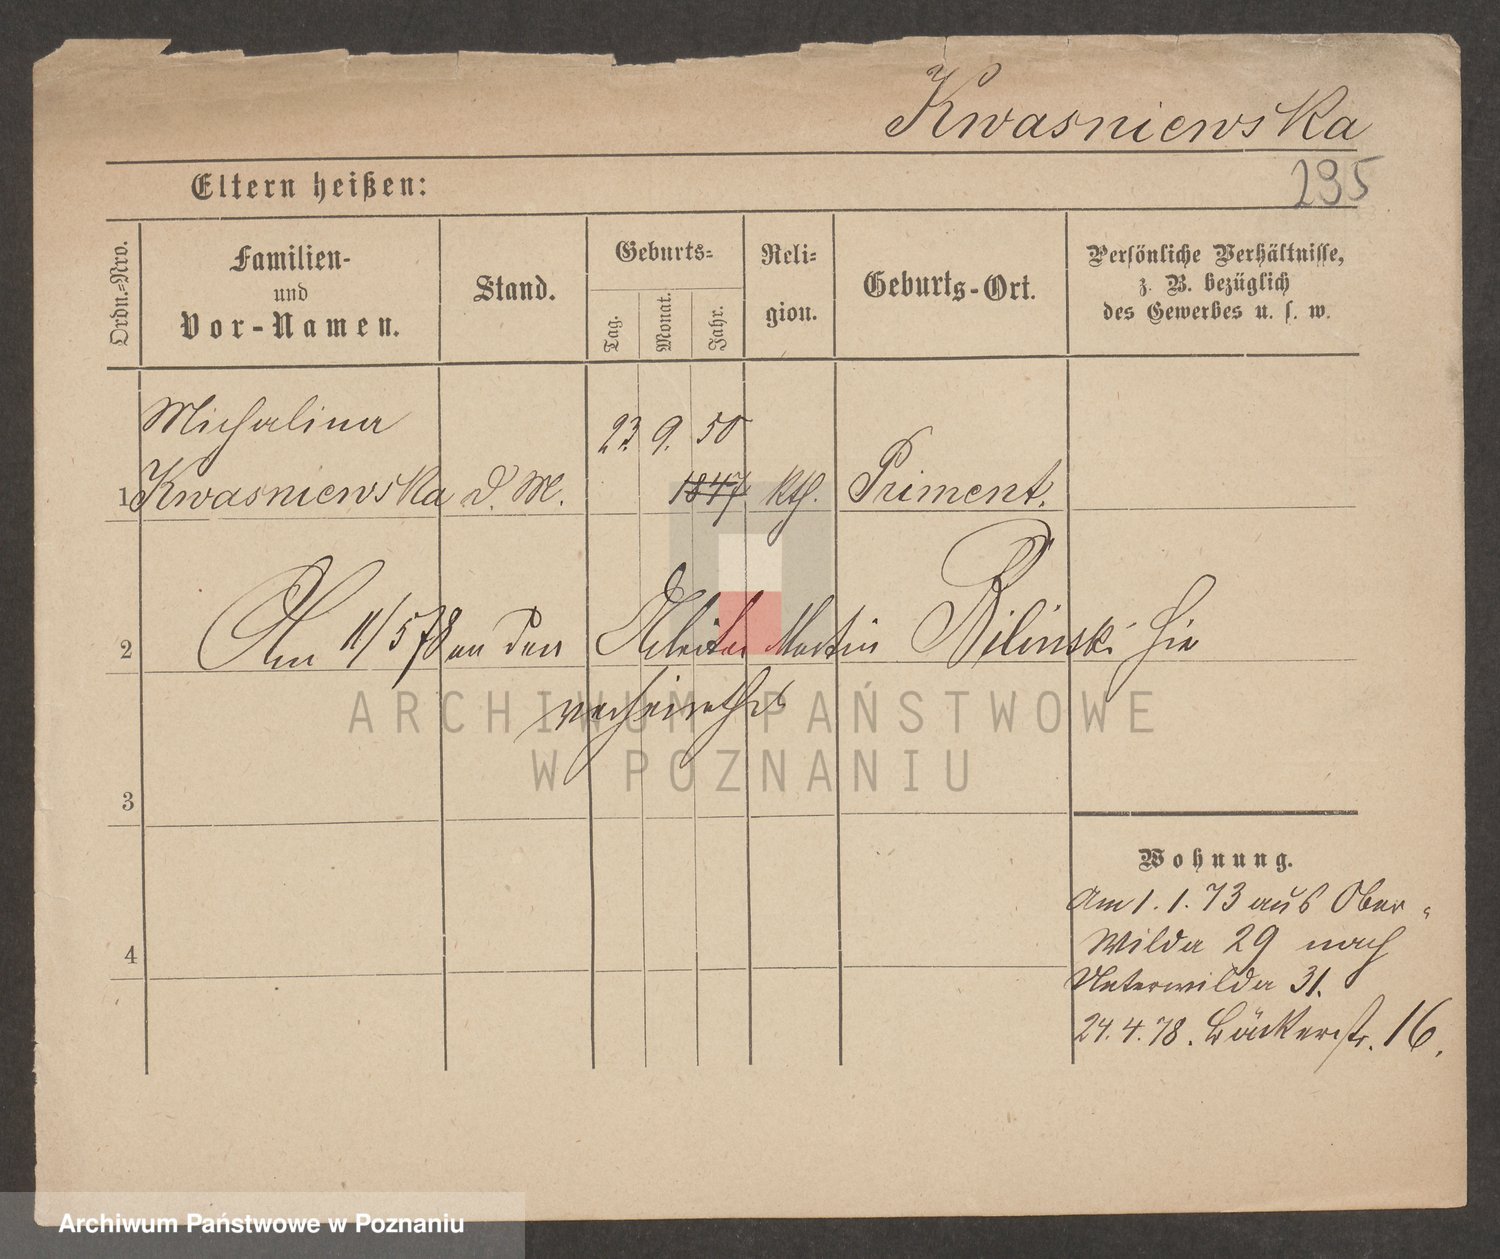 Kwasniewska
Eltern heißen:
235
Ordn.-Nro.
Familien-
und
Vor-Namen.
Stand.
Geburts-
Tag.
Monat.
Jahr.
Reli-
gion.
Geburts-Ort.
Persönliche Verhältnisse,
z. B. bezüglich
des Gewerbes u. s. w.
Michalina
23. 9. 50
1 Kwasniewska d. M. 1847 kth. Priment.
2 Am 11/5 78 an den Arbeiter Martin Bilinski hie
verheirathet
3
Wohnung.
Am 1. 1. 73 aus Ober-
Wilda 29 nach
Unterwilda 31.
4
24. 4. 78. Bäckerstr. 16.
ARCHIWUM PAŃSTWOWE
W POZNANIU
Archiwum Państwowe w Poznaniu